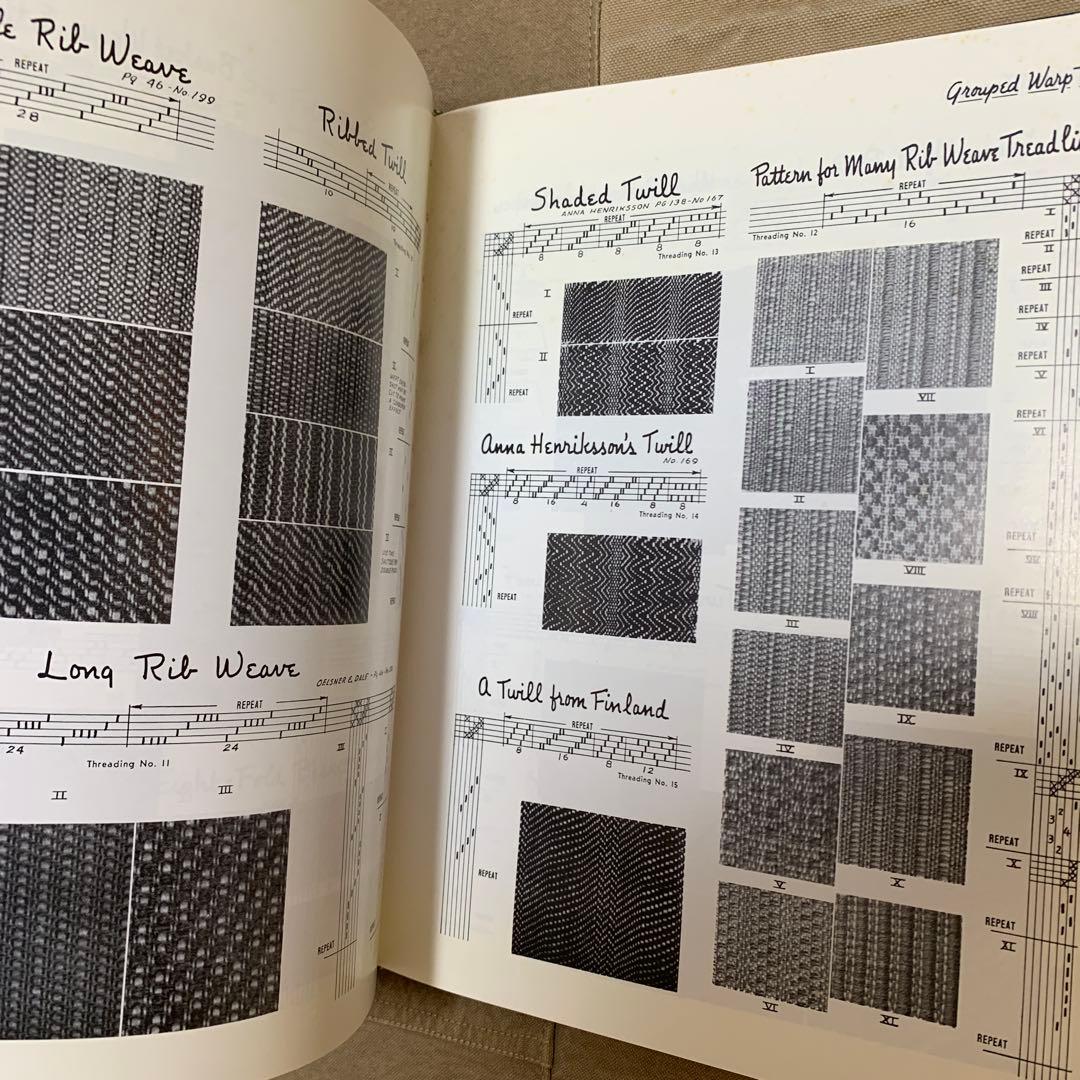 Rib Weave
REPEAT
Pg 46 - No. 199
28
Ribbed Twill
REPEAT
10
I
REPEAT
II
REPEAT
III
REPEAT
REPEAT
Long Rib Weave
OELSNER C. DALE
REPEAT
24
24
Threading No. 11
II
III
REPEAT
Grouped Warp
Shaded Twill
ANNA HENRIKSSON PG 138 - No 167
REPEAT
8 8 8 8 8
Threading No. 13
I
REPEAT
II
REPEAT
Anna Henriksson's Twill
No. 169
REPEAT
8 16 4 16 8 8
Threading No. 14
REPEAT
A Twill from Finland
REPEAT
8 16 8 12
Threading No. 15
REPEAT
Pattern for Many Rib Weave
REPEAT
16
Threading No. 12
I
II
III
IV
V
VI
VII
VIII
IX
X
XI
I
REPEAT
II
REPEAT
III
REPEAT
IV
REPEAT
V
REPEAT
VI
REPEAT
REPEAT
VIII
REPEAT
IX
3 2 4
3 2
REPEAT
X
REPEAT
XI
REPEAT